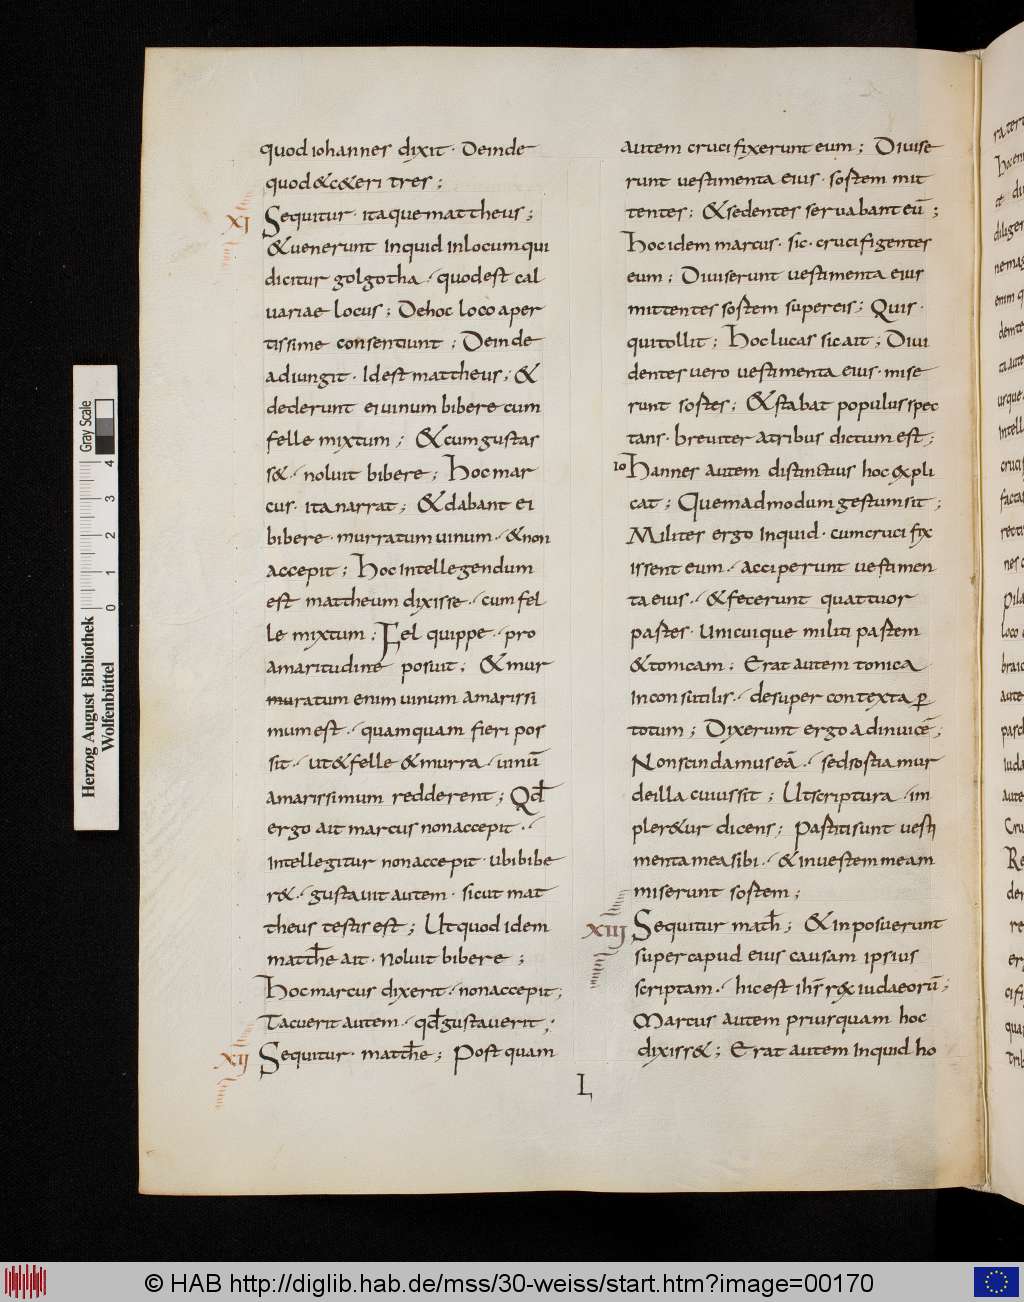 quod iohannes dixit· Deinde
quod & c&eri tres;
XI Sequitur· itaque mattheus;
& uenerunt inquid in locum qui
dicitur golgotha·/ quod est cal
uariae locus; De hoc loco aper
tissime consentiunt; Deinde
adiungit· Id est mattheus; &
dederunt ei uinum bibere cum
felle mixtum; & cum gustas
s&·/ noluit bibere; Hoc mar
cus· ita narrat; & dabant ei
bibere· murratum uinum·/ & non
accepit; Hoc intellegendum
est mattheum dixisse·/ cum fel
le mixtum; Fel quippe·/ pro
amaritudine posuit; & mur
muratum enim uinum amarissi
mum est·/ quamquam fieri pos
sit·/ ut & felle & murra·/ uinū
amarissimum redderent; Qđ
ergo ait marcus non accepit·/
Intellegitur non accepit· ubi bibe
r&·/ gustauit autem· sicut mat
theus testis est; Ut quod idem
matthe ait· noluit bibere;
Hoc marcus dixerit·/ non accepit;
Tacuerit autem·/ qđ gustauerit;
XII Sequitur· matthe; Postquam
autem crucifixerunt eum; Diuise
runt uestimenta eius· sostem mit
tentes; & sedentes seruabant eū;
Hoc idem marcus· sic· crucifigentes
eum; Diuiserunt uestimenta eius
mittentes sostem super eis; Quis·
quitollit; Hoc lucas sic ait; Diui
dentes uero uestimenta eius· mise
runt sostes; & stabat populus spec
tans· breuiter a tribus dictum est;
Iohannes autem distinctius hoc expli
cat; Quemadmodum gestum sit;
Milites ergo inquid· cum crucifix
issent eum·/ acciperunt uestimen
ta eius·/ & fecerunt quattuor
pastes· unicuique militi pastem
& tonicam; Erat autem tonica
inconsutilis·/ desuper contexta ꝑ
totum; Dixerunt ergo ad inuicē;
Non scindamus eā·/ sed sostiamur
de illa cuius sit; Ut scriptura·/ im
pler&ur dicens; Pastiti sunt uesti
menta mea sibi·/ & in uestem meam
miserunt sostem;
XIII Sequitur math; & inposuerunt
super capud eius causam ipsius
scriptam·/ hic est ihs rex iudaeorū;
Marcus autem priusquam hoc
dixiss&; Erat autem inquid ho
L
Herzog August Bibliothek
Wolfenbüttel
Gray Scale
0 1 2 3 4
© HAB http://diglib.hab.de/mss/30-weiss/start.htm?image=00170